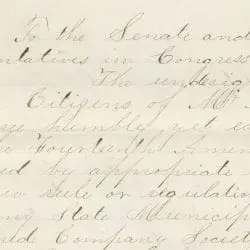 To the Senate and
ntatives in Congress
The undersig
Citizens of
humbly yet
Fourteenth Amen
ed by appropriate
rule or regulatin
State Municip
Company Societ